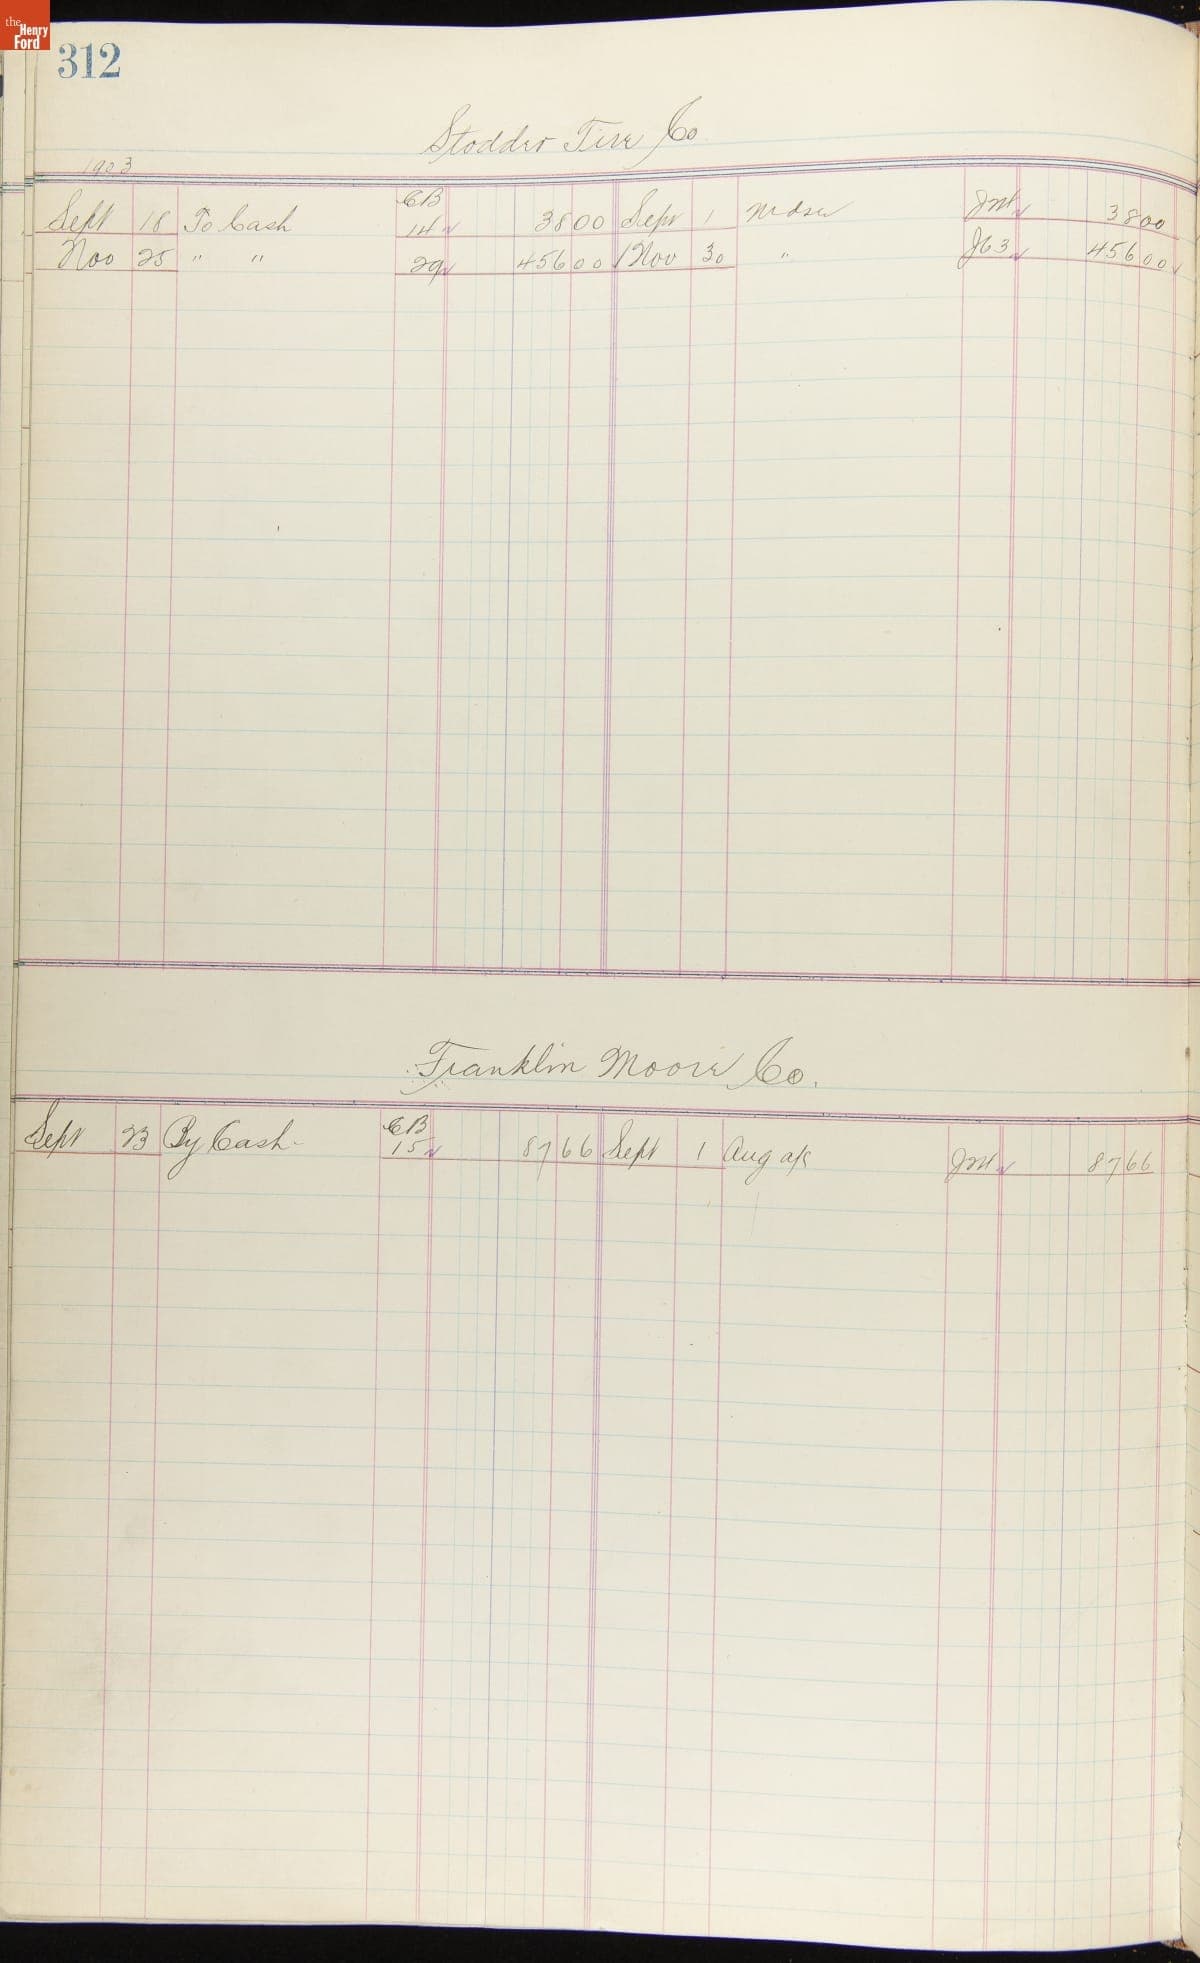 the Henry Ford
312
Stodder Tire Co
1903
CB
Sept 18 To Cash 14 38 00 Sept 1 Mdse Jnl 38 00
Nov 25 " " 29 456 00 Nov 30 " J63 456 00
Franklin Moore Co.
CB
Sept 23 By Cash 15 87 66 Sept 1 Aug a/c Jnl 87 66